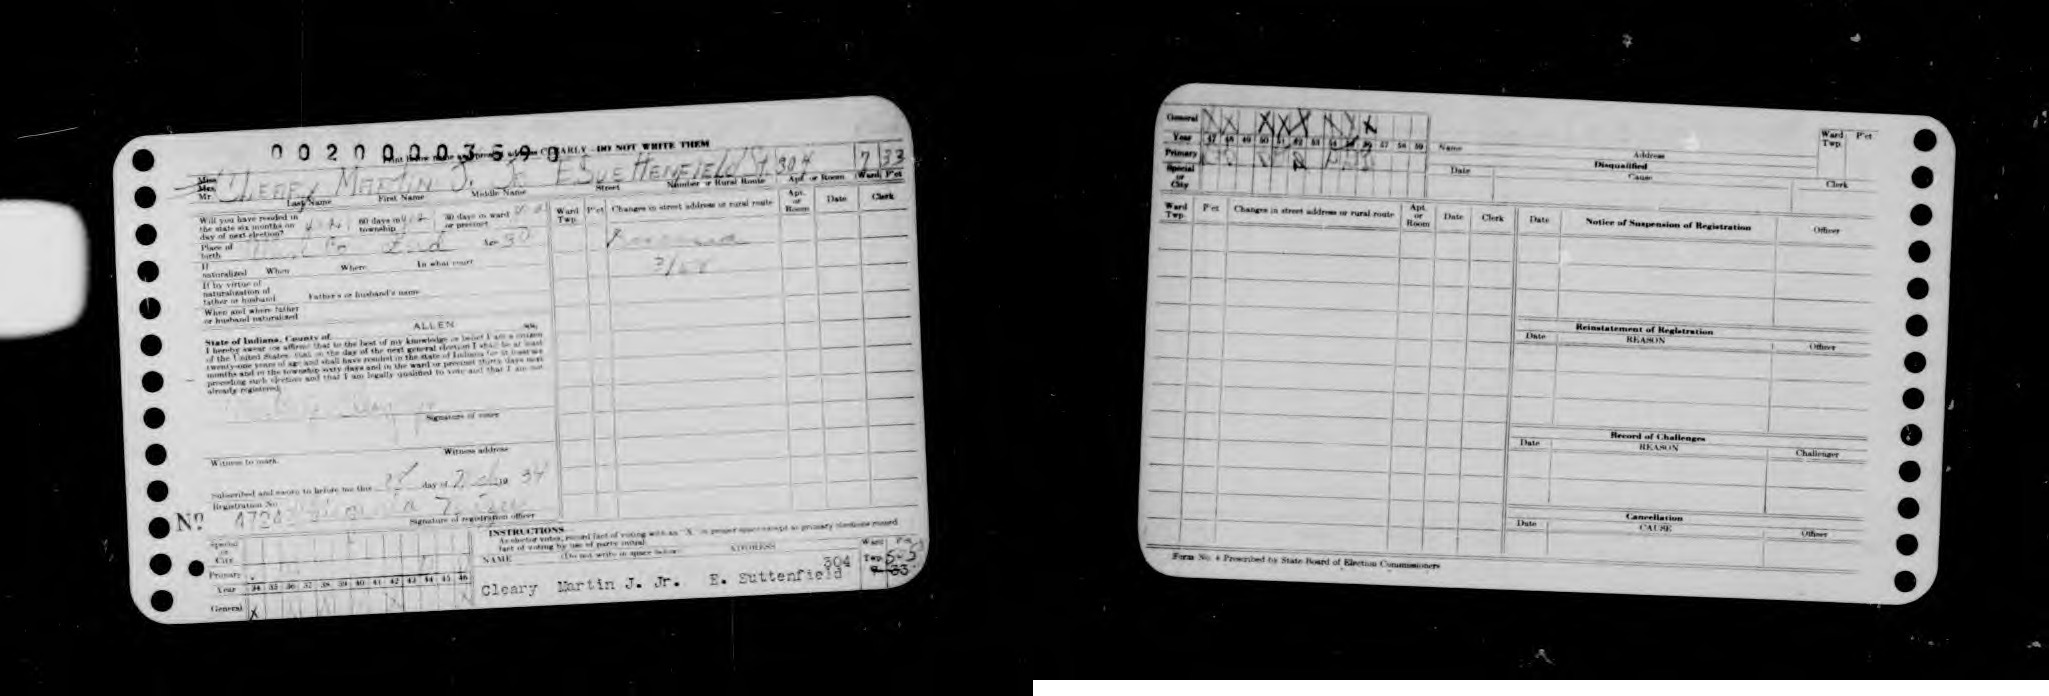 0 0 2 0 0 0 0 3 5 9 0
CLEARLY - DO NOT WRITE THEM
Miss
Mrs.
Mr.
Cleary Martin J. Jr E Suttenfield St. 304 7 33
Last Name First Name Middle Name Street Number or Rural Route Apt. or Room Ward P'ct
Will you have resided in
the state six months on
day of next election?
60 days in
township
30 days in ward
or precinct
Place of
birth
Ind Age 30
If
naturalized When Where In what court
If by virtue of
naturalization of
father or husband Father's or husband's name
When and where father
or husband naturalized
State of Indiana, County of ALLEN ss:
I hereby swear (or affirm) that to the best of my knowledge or belief I am a citizen
of the United States, that on the day of the next general election I shall be at least
twenty-one years of age and shall have resided in the state of Indiana for at least six
months and in the township sixty days and in the ward or precinct thirty days next
preceding such election and that I am legally qualified to vote and that I am not
already registered.
Signature of voter
Witness to mark Witness address
Subscribed and sworn to before me this day of 19 34
Registration No.
Nº
Signature of registration officer
Ward
Twp. P'ct Changes in street address or rural route Apt.
or
Room Date Clerk
INSTRUCTIONS
As elector votes, record fact of voting with an "X" in proper space except in primary elections record
fact of voting by use of party initial.
NAME (Do not write in space below) ADDRESS Ward P'ct
Twp. 5-5
7 33
304
Cleary Martin J. Jr. E. Suttenfield
Special
or
City
Primary
Year 34 35 36 37 38 39 40 41 42 43 44 45 46
General X
General X X X X X X
Year 47 48 49 50 51 52 53 54 55 56 57 58 59
Primary
Special
or
City
Name Address Ward
Twp. P'ct
Disqualified
Date Cause Clerk
Ward
Twp. P'ct Changes in street address or rural route Apt.
or
Room Date Clerk
Date Notice of Suspension of Registration Officer
Reinstatement of Registration
Date REASON Officer
Record of Challenges
Date REASON Challenger
Cancellation
Date CAUSE Officer
Form No. 4 Prescribed by State Board of Election Commissioners